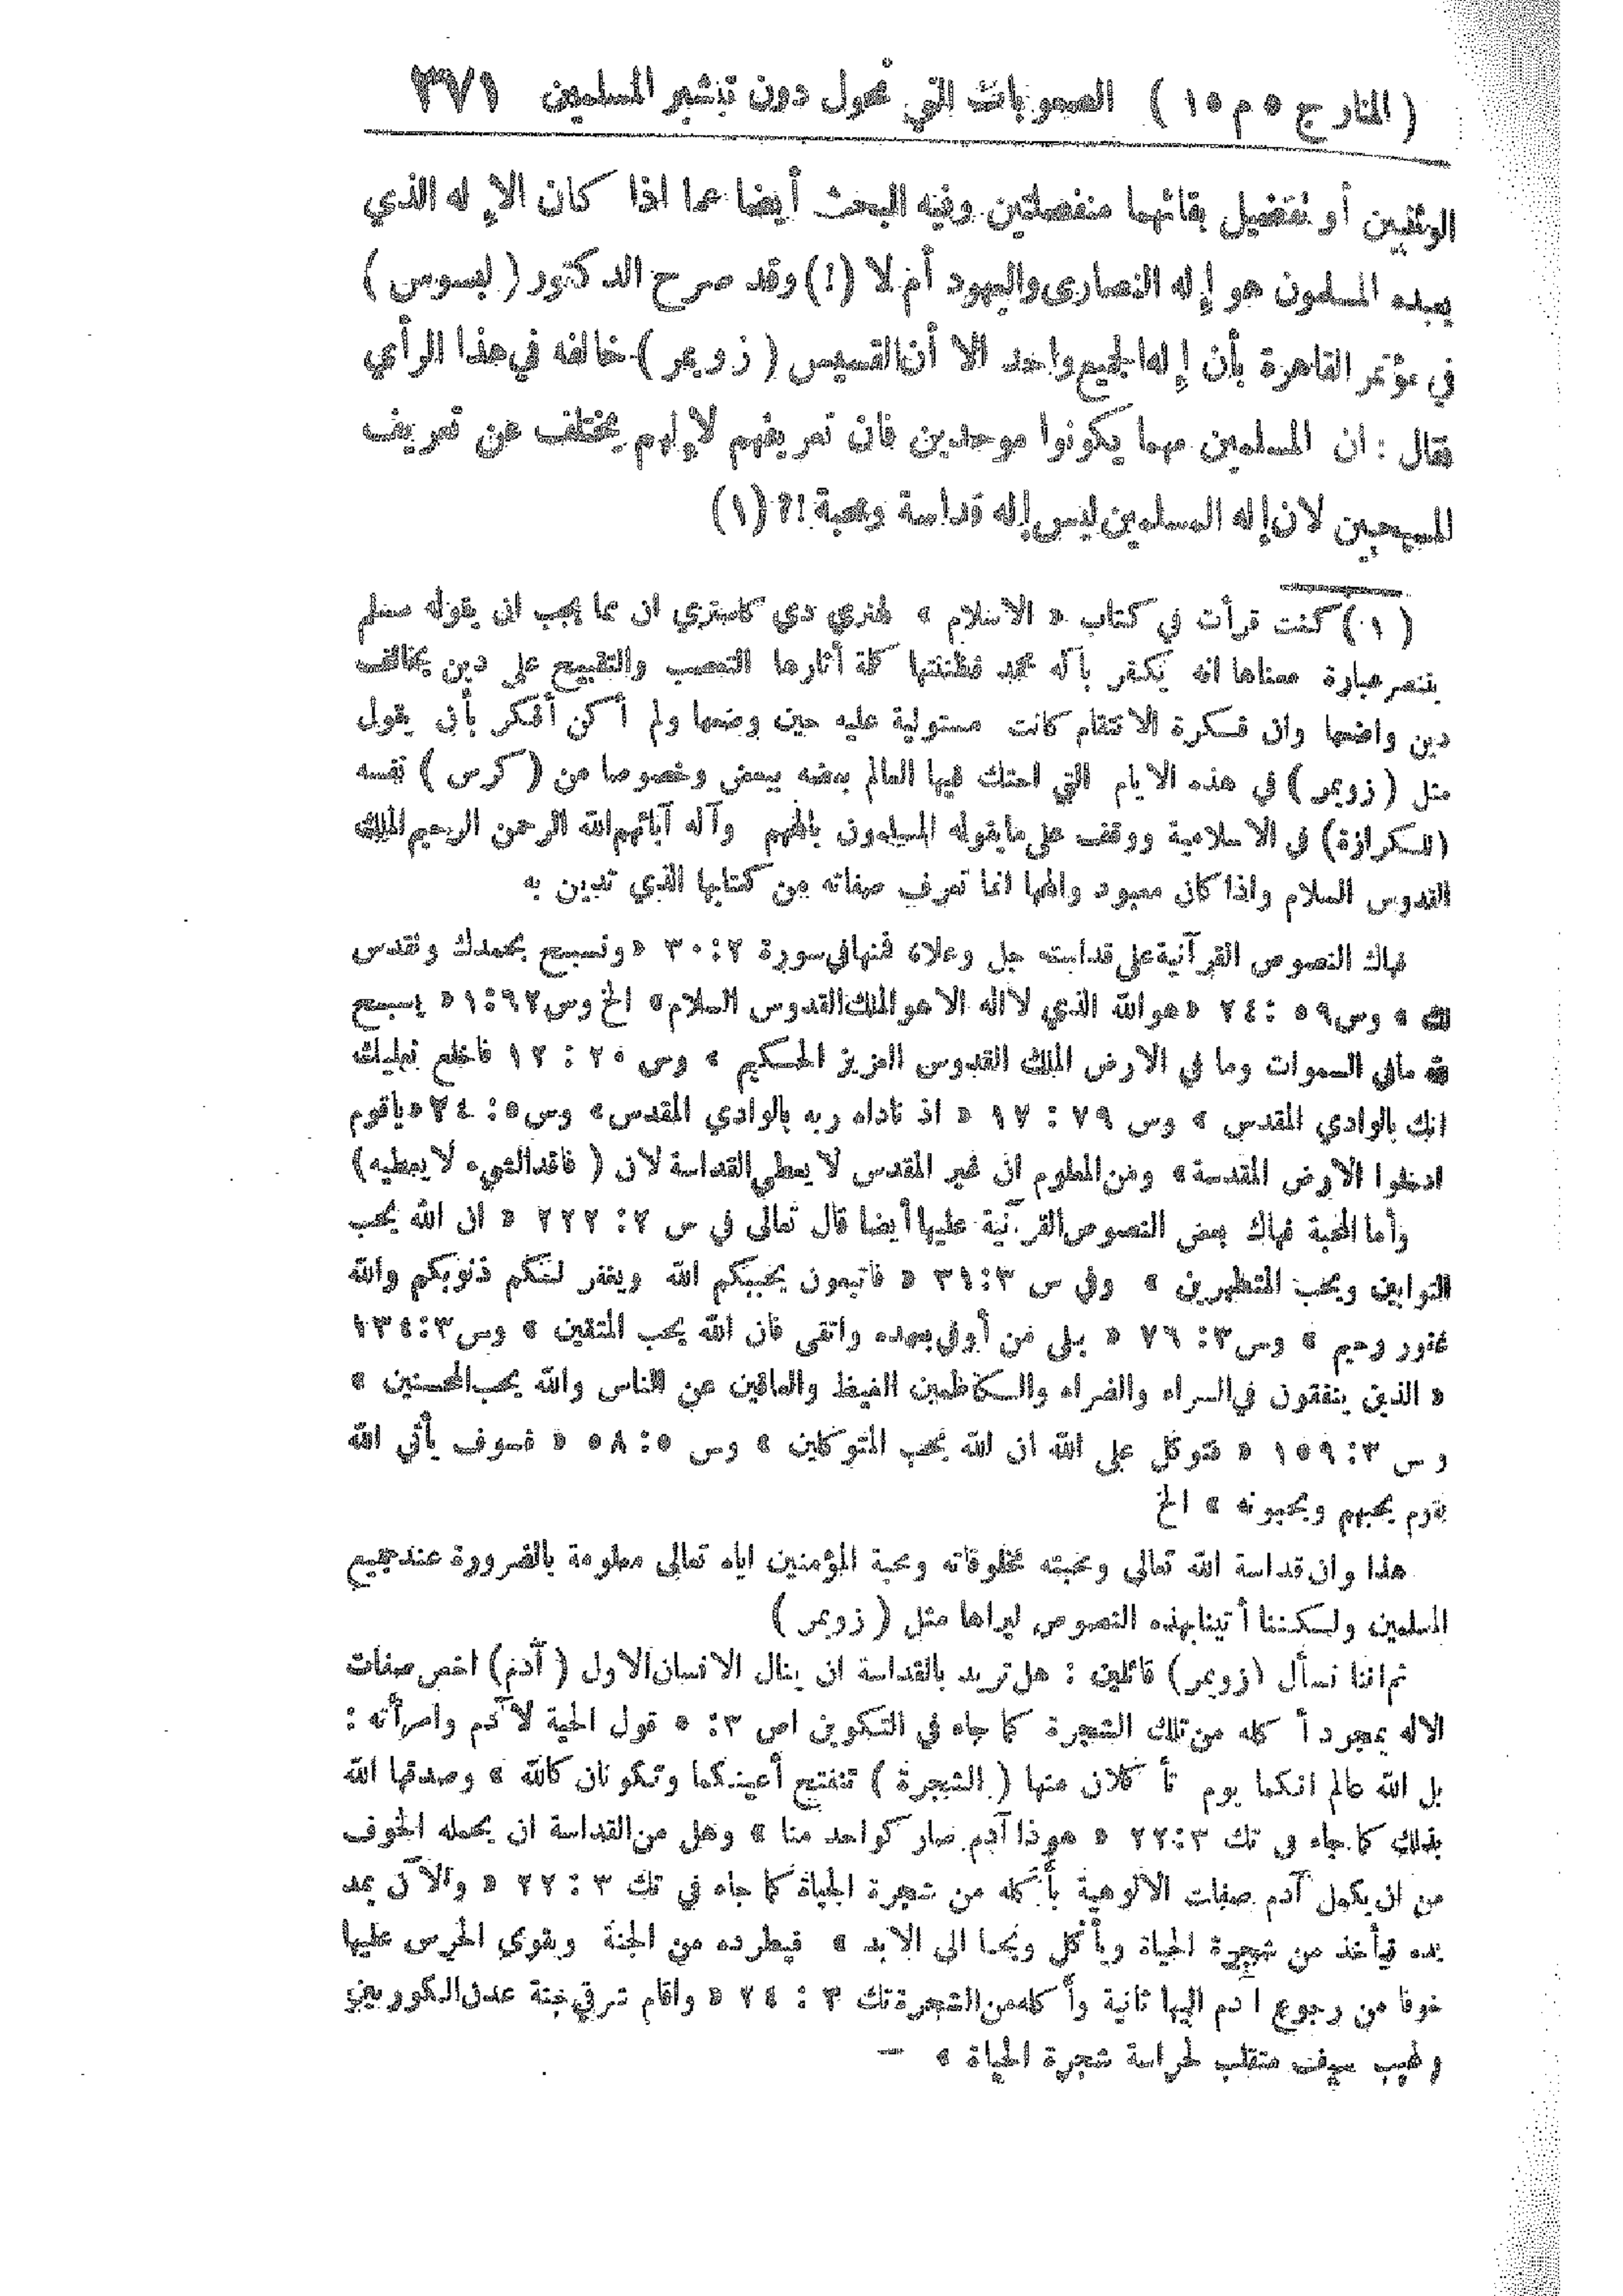 ( المنار ج ٥ م ١٥ ) الصعوبات التي تحول دون تبشير المسلمين ٣٧١
الوثنيين أو تفضيل بقائهما منفصلتين وفيه البحث أيضا عما اذا كان الاٍ له الذي
يعبده المسلمون هو إله النصارى واليهود أم لا (!) وقد صرح الدكتور ( لبسوس )
في مؤتمر القاهرة بأن إله الجميع واحد الا أن القسيس ( زويمر ) خالفه في هذا الرأي
فقال : ان المسلمين مهما يكونوا موحدين فان تعريفهم لإلههم يختلف عن تعريف
المسيحيين لان إله المسلمين ليس إله قداسة ومحبة !? (١)
(١) كنت قرأت في كتاب « الاسلام » لهنري دي كاستري ان مما يجب ان يقوله مسلم
يتنصر عبارة معناها انه يكفر بآله محمد فظننتها كلمة أثارها التعصب والتقبيح على دين يخالف
دين واضعها وان فكرة الانتقام كانت مستولية عليه حين وضعها ولم أكن أفكر بأن يقول
مثل ( زويمر ) في هذه الايام التي احتك فيها العالم بعضه ببعض وخصوصا من ( كرس ) نفسه
(للكرازة) في الاسلامية ووقف على ما يقوله المسلمون بالههم وآله آبائهم الله الرحمن الرحيم الملك
القدوس السلام واذا كان معبود والهها انما تعرف صفاته من كتابها الذي تدين به
فهاك النصوص القرآنية على قداسته جل وعلا، فمنها في سورة ٢ : ٣٠ « ونسبح بحمدك ونقدس
لك » وس ٥٩ : ٢٤ « هو الله الذي لا اله الا هو الملك القدوس السلام » الخ وس ٦٢ : ١ « يسبح
لله مافي السموات وما في الارض الملك القدوس العزيز الحكيم » وس ٢٠ : ١٢ فاخلع نعليك
انك بالوادي المقدس » وس ٧٩ : ١٧ « اذ ناداه ربه بالوادي المقدس » وس ٥ : ٢٤ « ياقوم
ادخلوا الارض المقدسة » ومن المعلوم ان غير المقدس لا يعطي القداسة لان ( فاقد الشيء لا يعطيه)
وأما المحبة فهاك بعض النصوص القرآنية عليها أيضا قال تعالى في س ٢ : ٢٢٢ « ان الله يحب
التوابين ويحب المتطهرين » وفي س ٣ : ٣١ « فاتبعون يحببكم الله ويغفر لكم ذنوبكم والله
غفور رحيم » وس ٣ : ٧٦ « بلى من أوفى بعهده واتقى فان الله يحب المتقين » وس ٣ : ١٣٤
« الذين ينفقون في السراء والضراء والكاظمين الغيظ والعافين عن الناس والله يحب المحسنين »
وس ٣ : ١٥٩ « فتوكل على الله ان الله يحب المتوكلين » وس ٥ : ٥٨ « فسوف يأتي الله
بقوم يحبهم ويحبونه » الخ
هذا وان قداسة الله تعالى ومحبته مخلوقاته ومحبة المؤمنين اياه تعالى معلومة بالضرورة عند جميع
المسلمين ولكننا أتينا بهذه النصوص ليراها مثل ( زويمر )
ثم اننا نسأل (زويمر) قائلين : هل تريد بالقداسة ان ينال الانسان الاول ( آدم) اخص صفات
الاله بمجرد أكله من تلك الشجرة كما جاء في التكوين اص ٣ : ٥ قول الحية لآدم وامرأته :
بل الله عالم انكما يوم تأكلان منها ( الشجرة ) تنفتح أعينكما وتكونان كالله » وصدقها الله
بذلك كما جاء في تك ٣ : ٢٢ « هوذا آدم صار كواحد منا » وهل من القداسة ان يحمله الخوف
من ان يكمل آدم صفات الالوهية بأكله من شجرة الحياة كما جاء في تك ٣ : ٢٢ « والآن يمد
يده فيأخذ من شجرة الحياة ويأكل ويحيا الى الابد » فيطرده من الجنة ويقوي الحرس عليها
خوفا من رجوع ادم اليها ثانية وأكله من الشجرة تك ٣ : ٢٤ « واقام شرقي جنة عدن الكوربين
ولهيب سيف متقلب لحراسة شجرة الحياة » —